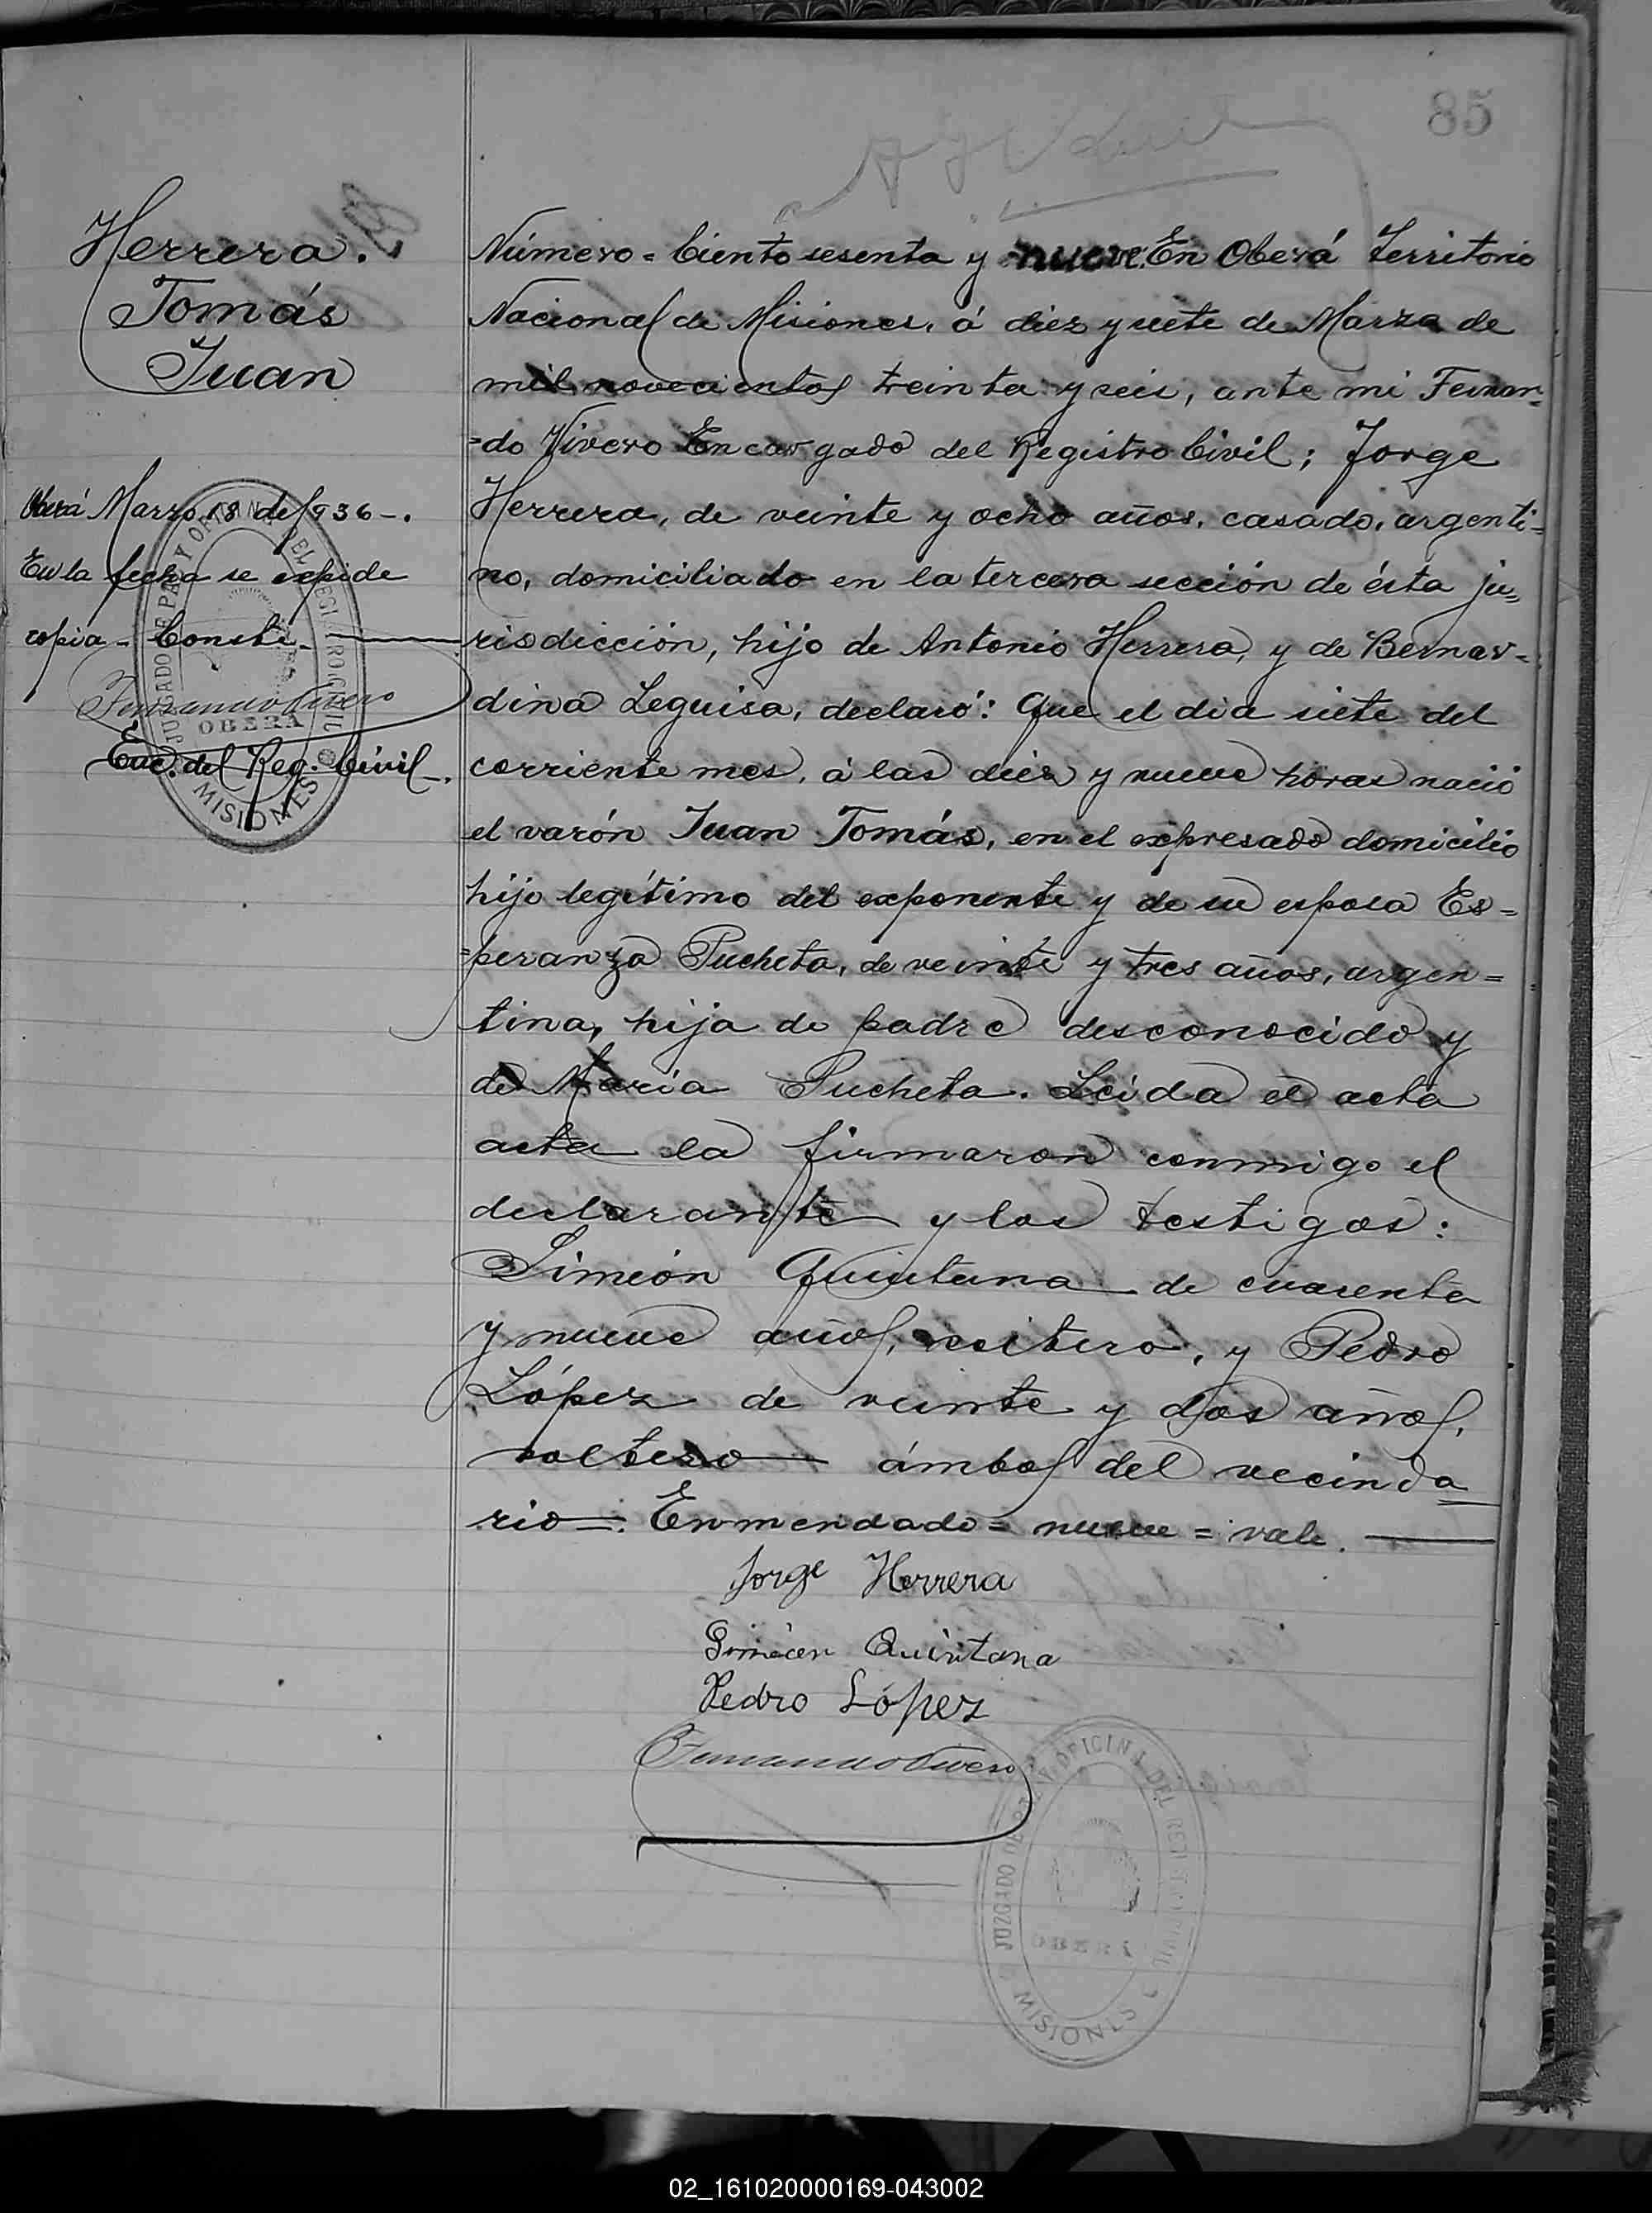 85
Herrera.
Tomás
Juan
Oberá Marzo 18 de 1936-.
En la fecha se expide
copia - Conste -
Fernando Vivero
Enc. del Reg. Civil -.
JUZGADO DE PAZ Y OFICINA DEL REGISTRO CIVIL
OBERÁ
MISIONES
Número = Ciento sesenta y nueve: En Oberá Territorio
Nacional de Misiones, á diez y siete de Marzo de
mil novecientos treinta y seis, ante mi Fernan-
=do Vivero Encargado del Registro Civil; Jorge
Herrera, de veinte y ocho años, casado, argenti=
no, domiciliado en la tercera sección de ésta ju=
risdicción, hijo de Antonio Herrera, y de Bernar-
dina Leguisa, declaró: Que el dia siete del
corriente mes, á las diez y nueve horas nació
el varón Juan Tomás, en el expresado domicilio
hijo legítimo del exponente y de su esposa Es=
=peranza Pucheta, de veinte y tres años, argen=
tina, hija de padre desconocido y
de María Pucheta. Leida el acta
acta la firmaron conmigo el
declarante y los testigos:
Simeón Quintana de cuarenta
y nueve años, soltero, y Pedro
López de veinte y dos años,
soltero ámbos del vecinda
rio=. Enmendado = nueve = vale.
Jorge Herrera
Simeón Quintana
Pedro López
Fernando Vivero
JUZGADO DE PAZ Y OFICINA DEL REGISTRO CIVIL
OBERÁ
MISIONES
02_161020000169-043002